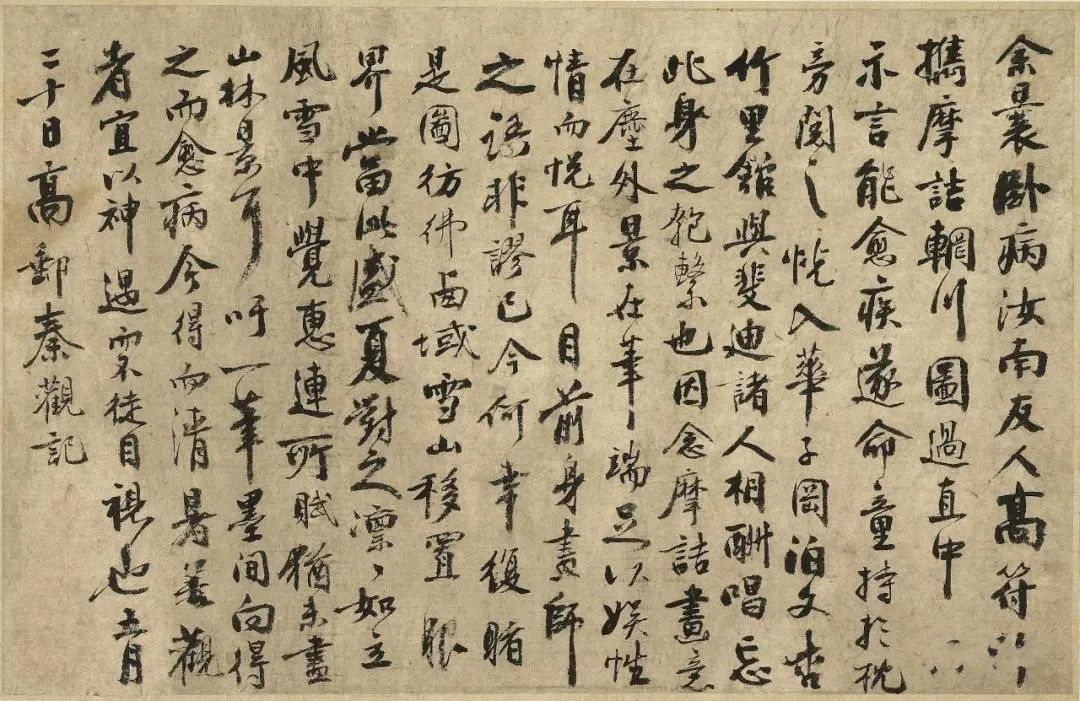 余曩卧病汝南友人高符
攜摩詰輞川圖過直中
示言能愈疾遂命童持於枕
旁閱之恍入華子岡泊文杏
竹里館與斐迪諸人相酬唱忘
此身之匏繫也因念摩詰畫意
在塵外景在筆端足以娛性
情而悅耳目前身畫師
之語非謬已今何幸復睹
是圖彷彿西域雪山移置眼
界當此盛夏對之凜凜如立
風雪中覺惠連所賦猶未盡
山林景耳吁一筆墨間向得
之而愈病今得而清暑善觀
者宜以神遇而不徒目視也五月
二十日高郵秦觀記